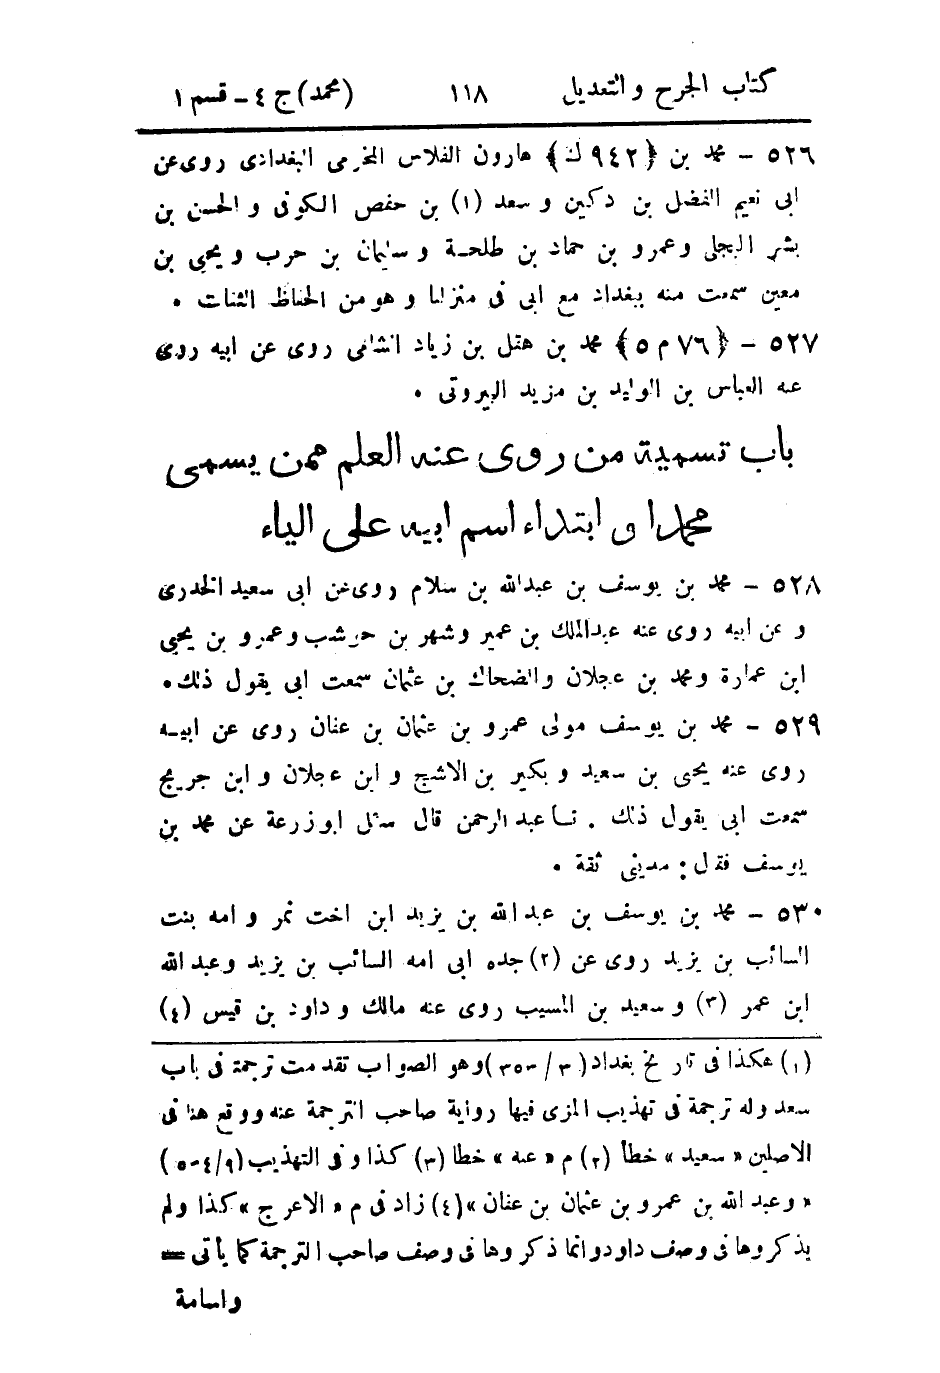 كتاب الجرح والتعديل ١١٨ (محمد) ج ٤ - قسم ١
٥٢٦ - محمد بن ﴿٩٤٢ ك﴾ هارون الفلاس المخرمى البغدادى روى عن
ابى نعيم الفضل بن دكين و سعد (١) بن حفص الكوفى و الحسن بن
بشر البجلى وعمرو بن حماد بن طلحة و سليمان بن حرب و يحيى بن
معين سمعت منه ببغداد مع ابى فى منزلنا و هو من الحفاظ الثقات •
٥٢٧ - ﴿٧٦ م ٥﴾ محمد بن هقل بن زياد الشامى روى عن ابيه روى
عنه العباس بن الوليد بن مزيد البيروتى •
باب تسمية من روى عنه العلم ممن يسمى
محمدا و ابتداء اسم ابيه على الياء
٥٢٨ - محمد بن يوسف بن عبدالله بن سلام روى عن ابى سعيد الخدرى
و عن ابيه روى عنه عبدالملك بن عمير وشهر بن حوشب وعمرو بن يحيى
ابن عمارة ومحمد بن عجلان والضحاك بن عثمان سمعت ابى يقول ذلك •
٥٢٩ - محمد بن يوسف مولى عمرو بن عثمان بن عفان روى عن ابيه
روى عنه يحيى بن سعيد و بكير بن الاشج و ابن عجلان و ابن جريج
سمعت ابى يقول ذلك . نا عبد الرحمن قال سئل ابو زرعة عن محمد بن
يوسف فقال : مدينى ثقة •
٥٣٠ - محمد بن يوسف بن عبد الله بن يزيد ابن اخت نمر و امه بنت
السائب بن يزيد روى عن (٢) جده ابى امه السائب بن يزيد وعبد الله
ابن عمر (٣) و سعيد بن المسيب روى عنه مالك و داود بن قيس (٤)
(١) هكذا فى تاريخ بغداد (٣ / ٣٥٠) وهو الصواب تقدمت ترجمة فى باب
سعد وله ترجمة فى تهذيب المزى فيها رواية صاحب الترجمة عنه ووقع هنا فى
الاصلين « سعيد » خطأ (٢) م « عنه » خطا (٣) كذا و فى التهذيب (٩/ ٥٠٤)
« وعبد الله بن عمرو بن عثمان بن عفان » (٤) زاد فى م « الاعرج » كذا ولم
يذكروها فى وصف داود وانما ذكروها فى وصف صاحب الترجمة كما يأتى =
واسامة